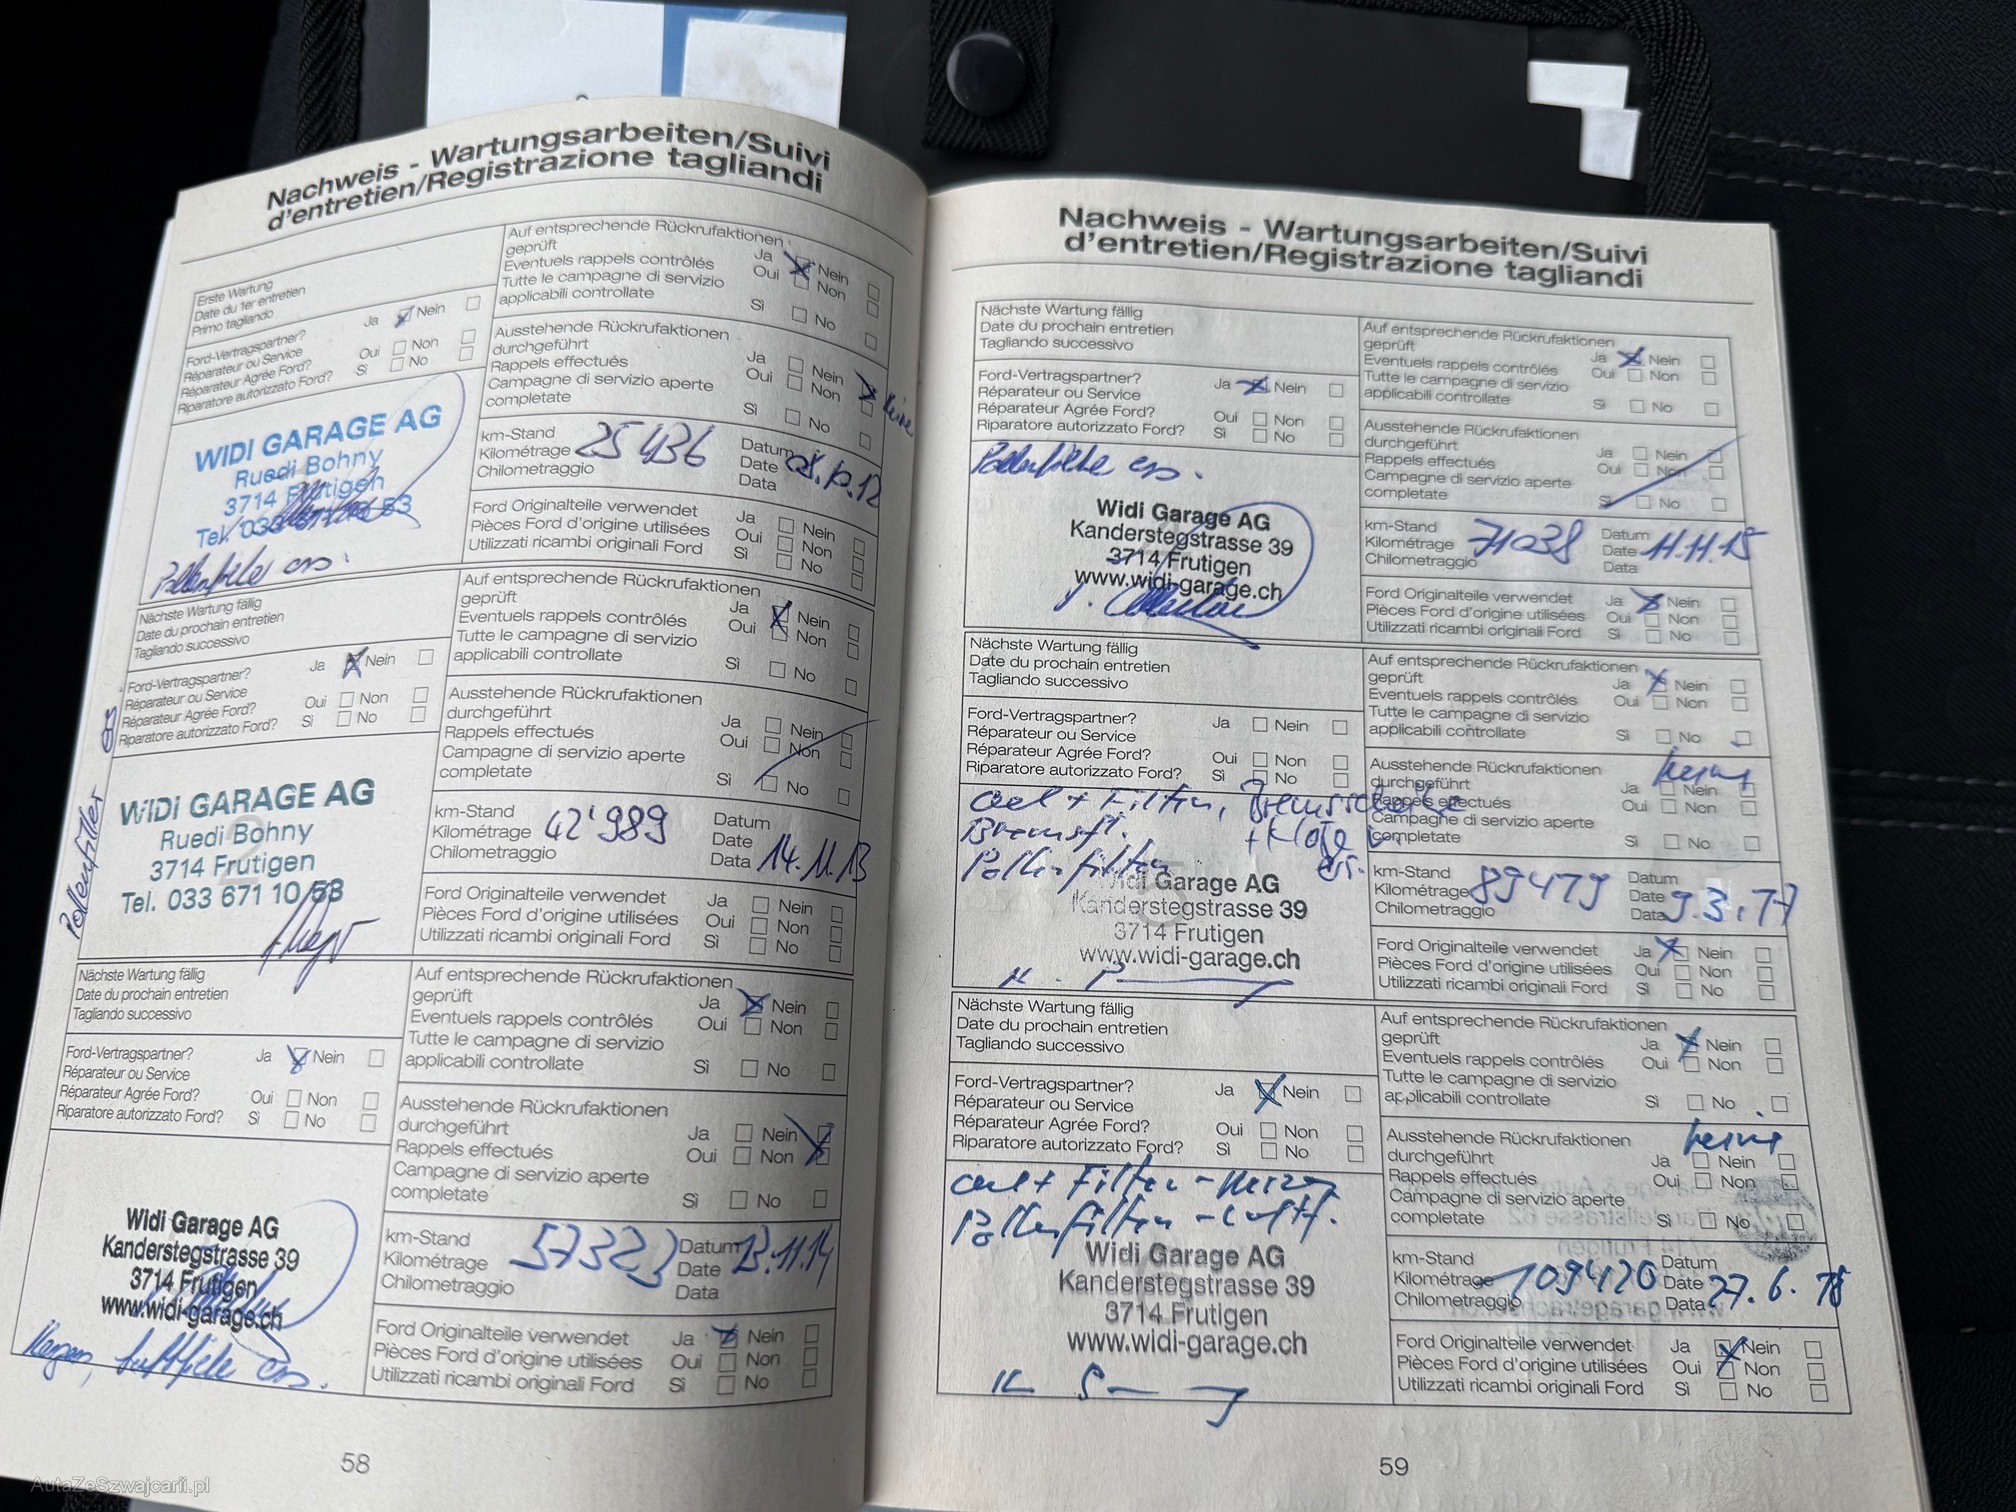 Nachweis - Wartungsarbeiten/Suivi
d'entretien/Registrazione tagliandi
Erste Wartung
Date du 1er entretien
Primo tagliando
Ford-Vertragspartner?
Réparateur ou Service
Réparateur Agrée Ford?
Riparatore autorizzato Ford?
Ja Nein
Oui Non
Sì No
WIDI GARAGE AG
Ruedi Bohny
3714 Frutigen
Tel. 033
Auf entsprechende Rückrufaktionen
geprüft
Eventuels rappels contrôlés
Tutte le campagne di servizio
applicabili controllate
Ja Nein
Oui Non
Sì No
Ausstehende Rückrufaktionen
durchgeführt
Rappels effectués
Campagne di servizio aperte
completate
Ja Nein
Oui Non
Sì No
keine
km-Stand
Kilométrage
Chilometraggio
25436
Datum
Date
Data
Ford Originalteile verwendet
Pièces Ford d'origine utilisées
Utilizzati ricambi originali Ford
Ja Nein
Oui Non
Sì No
Nächste Wartung fällig
Date du prochain entretien
Tagliando successivo
Ford-Vertragspartner?
Réparateur ou Service
Réparateur Agrée Ford?
Riparatore autorizzato Ford?
Ja Nein
Oui Non
Sì No
Pollenfilter ers
WIDI GARAGE AG
Ruedi Bohny
3714 Frutigen
Tel. 033 671 10 53
Auf entsprechende Rückrufaktionen
geprüft
Eventuels rappels contrôlés
Tutte le campagne di servizio
applicabili controllate
Ja Nein
Oui Non
Sì No
Ausstehende Rückrufaktionen
durchgeführt
Rappels effectués
Campagne di servizio aperte
completate
Ja Nein
Oui Non
Sì No
km-Stand
Kilométrage
Chilometraggio
42'989
Datum
Date
Data
14.11.13
Ford Originalteile verwendet
Pièces Ford d'origine utilisées
Utilizzati ricambi originali Ford
Ja Nein
Oui Non
Sì No
Nächste Wartung fällig
Date du prochain entretien
Tagliando successivo
Ford-Vertragspartner?
Réparateur ou Service
Réparateur Agrée Ford?
Riparatore autorizzato Ford?
Ja Nein
Oui Non
Sì No
Widi Garage AG
Kanderstegstrasse 39
3714 Frutigen
www.widi-garage.ch
Auf entsprechende Rückrufaktionen
geprüft
Eventuels rappels contrôlés
Tutte le campagne di servizio
applicabili controllate
Ja Nein
Oui Non
Sì No
Ausstehende Rückrufaktionen
durchgeführt
Rappels effectués
Campagne di servizio aperte
completate
Ja Nein
Oui Non
Sì No
km-Stand
Kilométrage
Chilometraggio
57323
Datum
Date
Data
13.11.14
Ford Originalteile verwendet
Pièces Ford d'origine utilisées
Utilizzati ricambi originali Ford
Ja Nein
Oui Non
Sì No
58
Nachweis - Wartungsarbeiten/Suivi
d'entretien/Registrazione tagliandi
Nächste Wartung fällig
Date du prochain entretien
Tagliando successivo
Ford-Vertragspartner?
Réparateur ou Service
Réparateur Agrée Ford?
Riparatore autorizzato Ford?
Ja Nein
Oui Non
Sì No
Widi Garage AG
Kanderstegstrasse 39
3714 Frutigen
www.widi-garage.ch
Auf entsprechende Rückrufaktionen
geprüft
Eventuels rappels contrôlés
Tutte le campagne di servizio
applicabili controllate
Ja Nein
Oui Non
Sì No
Ausstehende Rückrufaktionen
durchgeführt
Rappels effectués
Campagne di servizio aperte
completate
Ja Nein
Oui Non
Sì No
km-Stand
Kilométrage
Chilometraggio
71038
Datum
Date
Data
11.11.15
Ford Originalteile verwendet
Pièces Ford d'origine utilisées
Utilizzati ricambi originali Ford
Ja Nein
Oui Non
Sì No
Nächste Wartung fällig
Date du prochain entretien
Tagliando successivo
Ford-Vertragspartner?
Réparateur ou Service
Réparateur Agrée Ford?
Riparatore autorizzato Ford?
Ja Nein
Oui Non
Sì No
oel + Filter, Bremsscheibe
Bremsfl. + Klötze
Pollenfilter ers.
Widi Garage AG
Kanderstegstrasse 39
3714 Frutigen
www.widi-garage.ch
Auf entsprechende Rückrufaktionen
geprüft
Eventuels rappels contrôlés
Tutte le campagne di servizio
applicabili controllate
Ja Nein
Oui Non
Sì No
Ausstehende Rückrufaktionen
durchgeführt
Rappels effectués
Campagne di servizio aperte
completate
keine
Ja Nein
Oui Non
Sì No
km-Stand
Kilométrage
Chilometraggio
89479
Datum
Date
Data
9.3.17
Ford Originalteile verwendet
Pièces Ford d'origine utilisées
Utilizzati ricambi originali Ford
Ja Nein
Oui Non
Sì No
Nächste Wartung fällig
Date du prochain entretien
Tagliando successivo
Ford-Vertragspartner?
Réparateur ou Service
Réparateur Agrée Ford?
Riparatore autorizzato Ford?
Ja Nein
Oui Non
Sì No
oel + Filter -
Pollenfilter - Luftf.
Widi Garage AG
Kanderstegstrasse 39
3714 Frutigen
www.widi-garage.ch
Auf entsprechende Rückrufaktionen
geprüft
Eventuels rappels contrôlés
Tutte le campagne di servizio
applicabili controllate
Ja Nein
Oui Non
Sì No
Ausstehende Rückrufaktionen
durchgeführt
Rappels effectués
Campagne di servizio aperte
completate
keine
Ja Nein
Oui Non
Sì No
km-Stand
Kilométrage
Chilometraggio
109420
Datum
Date
Data
27.6.18
Ford Originalteile verwendet
Pièces Ford d'origine utilisées
Utilizzati ricambi originali Ford
Ja Nein
Oui Non
Sì No
59
AutaZeSzwajcarii.pl